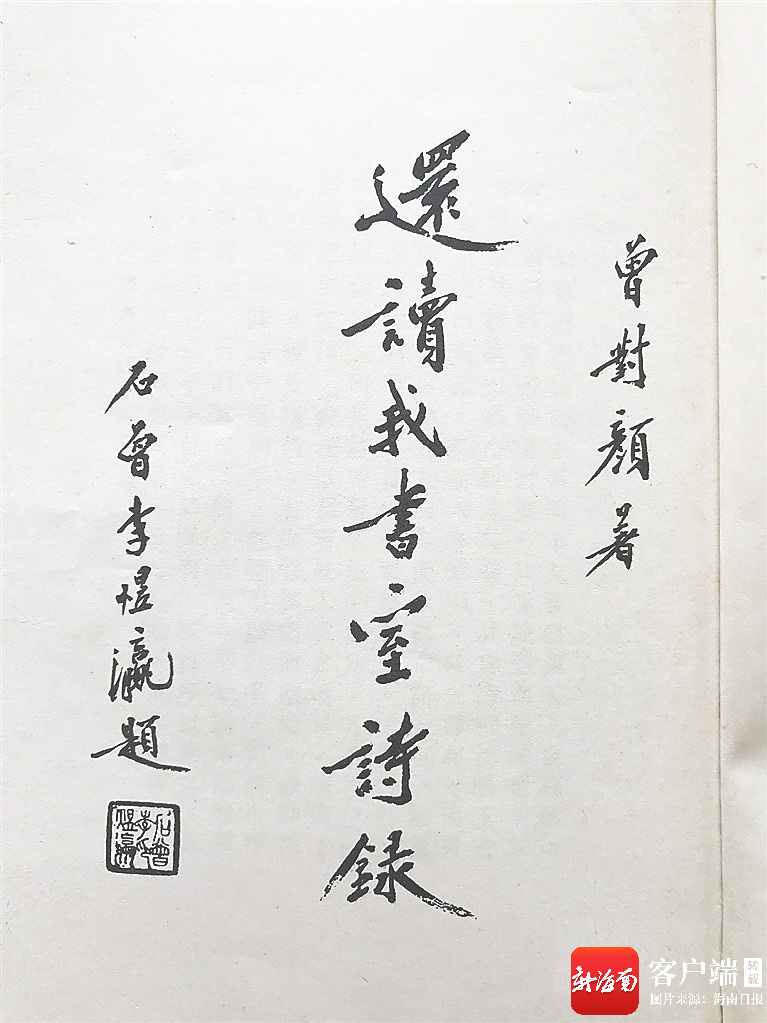 曾對顏著
還讀我書室詩錄
石曾李煜瀛題
石曾李煜瀛
新海南
客户端
转载
图片来源：海南日报